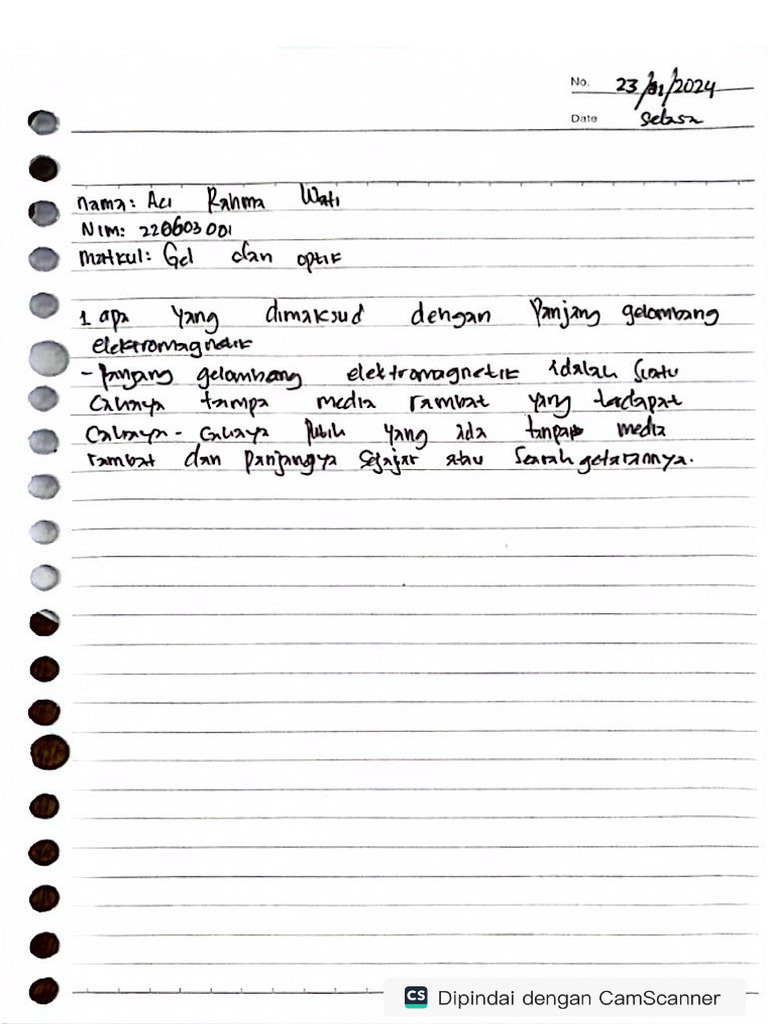 No. 23/01/2024
Date Selasa
nama: Aci Rahma Wati
NIM: 220603001
Matkul: Gel dan optik
1 apa yang dimaksud dengan Panjang gelombang
elektromagnetik
- Panjang gelombang elektromagnetik adalah Suatu
Cahaya tampa media rambat yang terdapat
Cahaya - cahaya Putih yang ada tanpa media
rambat dan panjangya sejajar atau Searah getarannya.
CS Dipindai dengan CamScanner